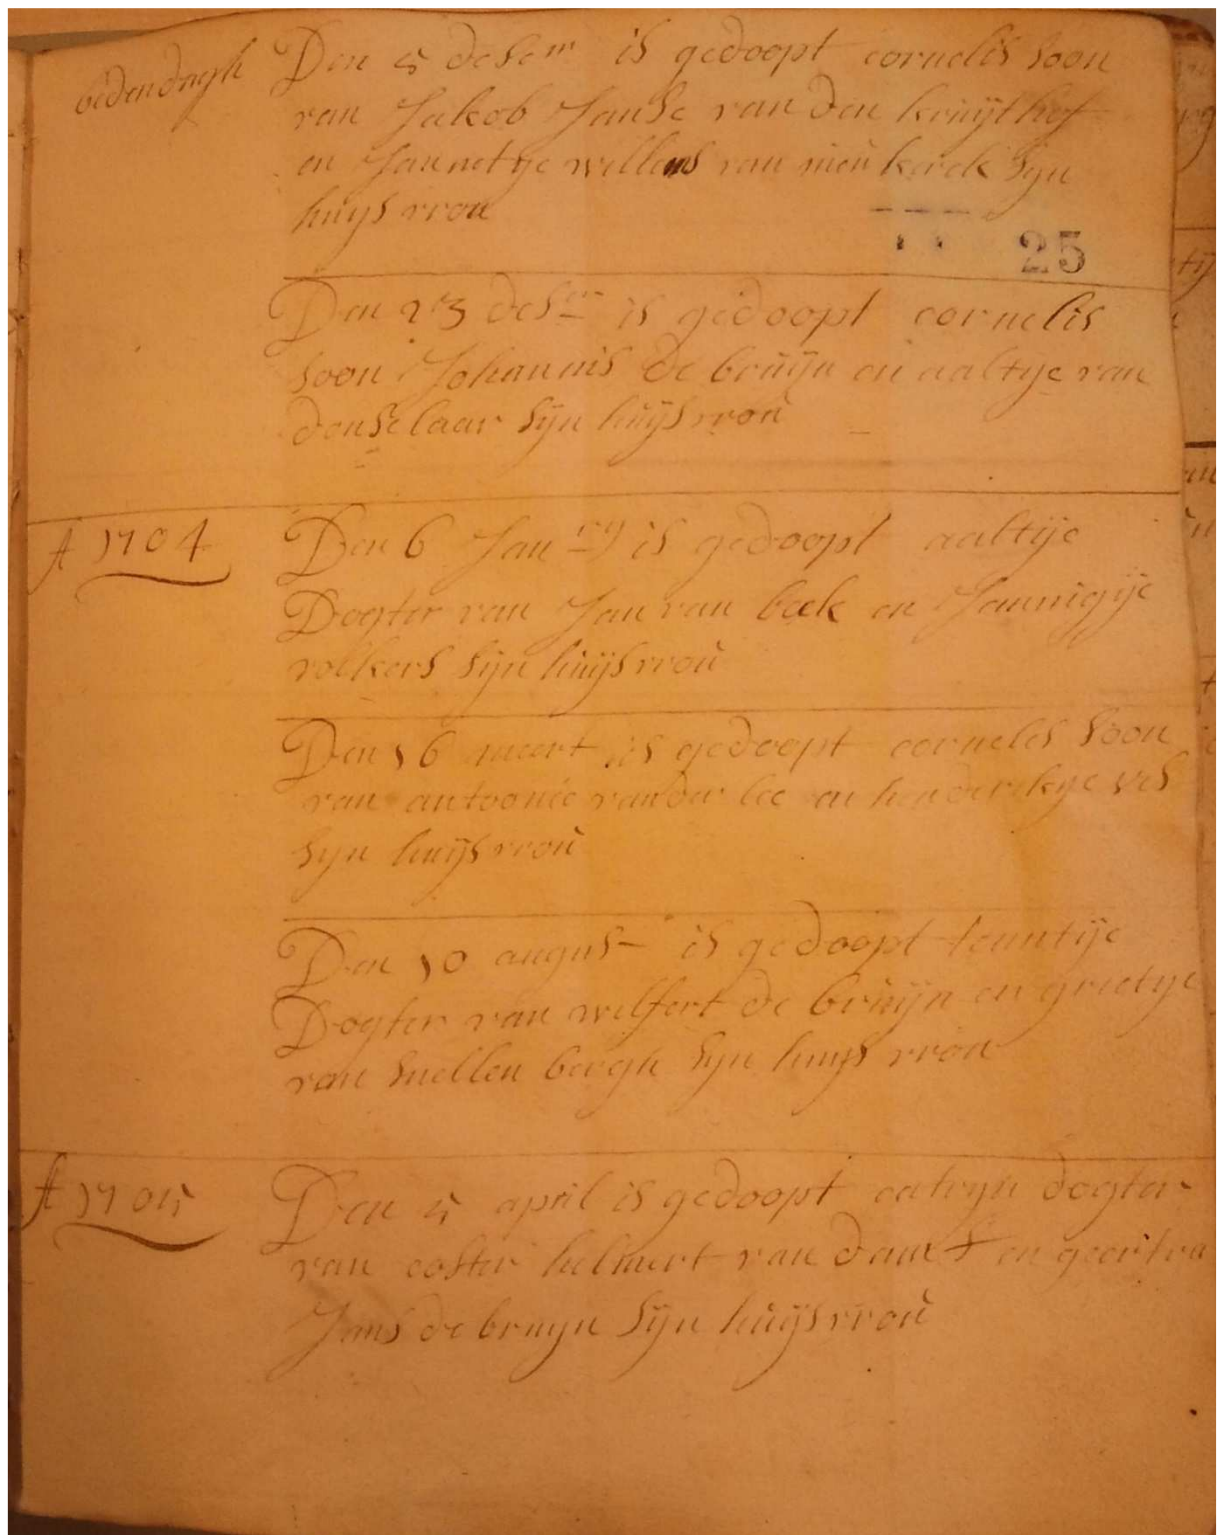 bedendagh
Den 5 desem is gedoopt cornelis soon
van Jakob Janse van den kruijthof
en Jannetye willems van nieukerck syn
huys vrou
25
Den 23 desm is gedoopt cornelis
soon Johannis de bruijn en aaltye van
denselaar sijn huijsvroù
A 1704 Den 6 Janry is gedoopt aaltije
Dogter van Jan van beek en Jannigije
volkers sijn huijsvroù
Den 16 meert is gedoopt cornelis soon
van antoonie vander lee en henderekye vis
syn huijsvroù
Den 10 augus is gedoopt teuntije
Dogter van welfert de bruijn en grietye
van snellen bergh syn huys vrou
A 1705 Den 5 april is gedoopt catryn dogter
van coster helmert van dam en geertru
Jans de bruyn sijn huijsvroù